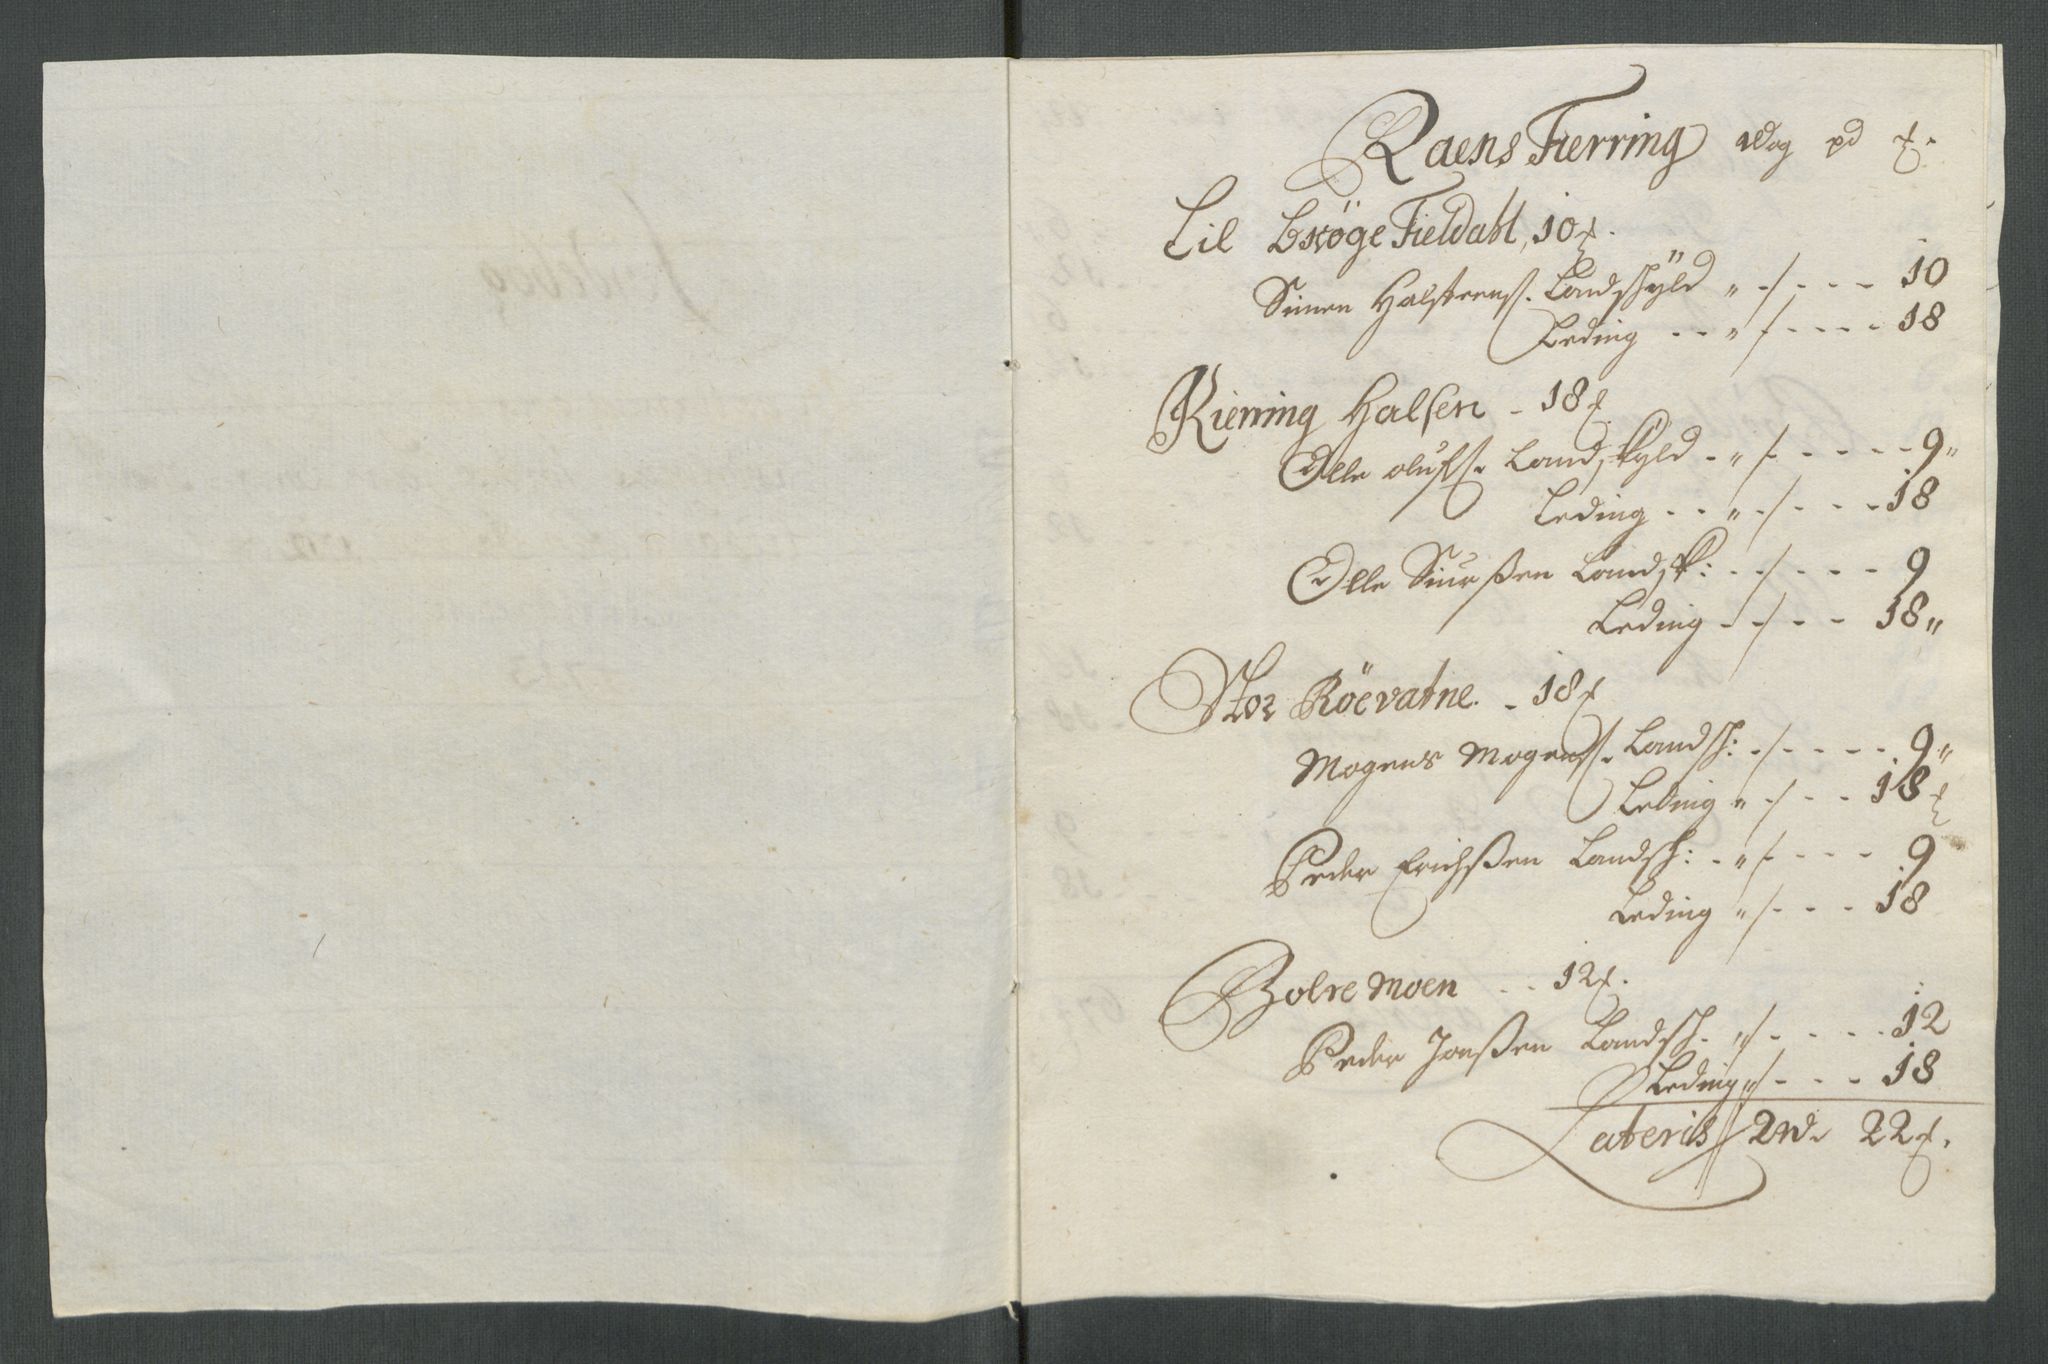 Raens Fierring Wog pd ℔.
Lil Bröge Fieldahl, 10 ℔.
Simen Halstens: Landschÿld " - / - - - - 10
Leding - - " / - - - - 18
Kierring Halsen - 18 ℔
Olle olufs: Landskyld - " / - - - - - 9 "
Leding - - " - / - - - - 18
Olle Siurßen Landsk: - - / - - - - 9
Leding - - / - - - 18 "
Stor Röevatne. - 18 ℔
Mogens Mogens: Landsch: - / - - - - - 9 "
Leding " - / - - - 18 ℔
Peder Erichßen Landsch: - " / - - - - 9
Leding " / - - - - 18
Holre Moen - - 12 ℔.
Peder Joenßen Landsch - " / - - - - - 12
Leding " / - - - - 18
Lateris 2 W. 22 ℔.